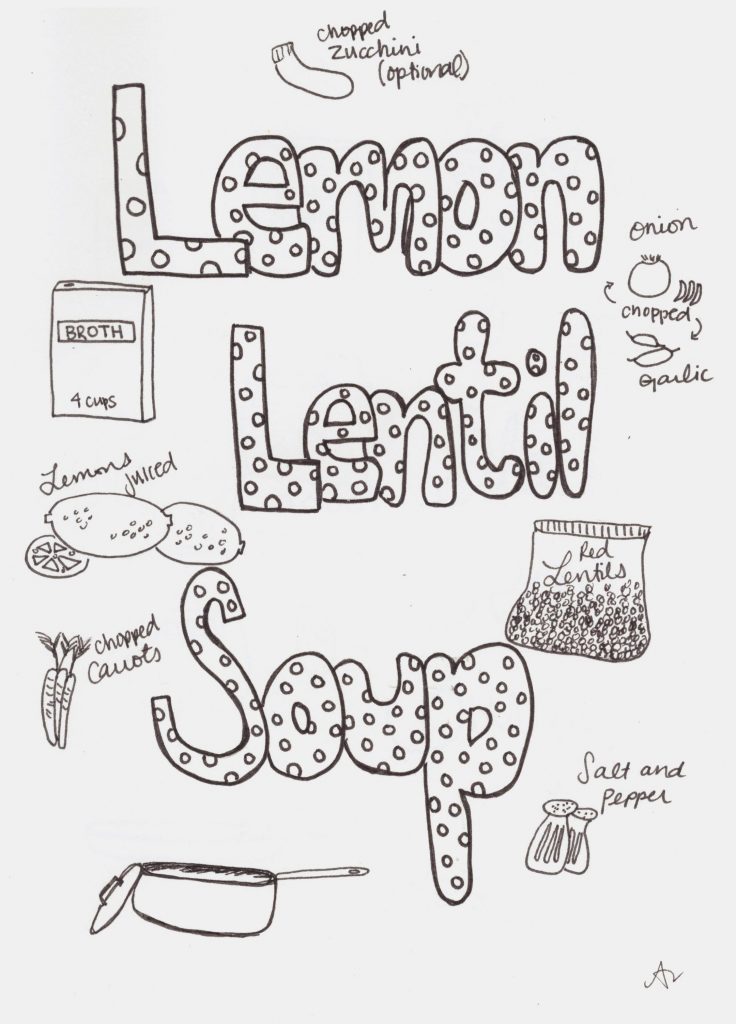 chopped
zucchini
(optional)
Lemon
onion
chopped
garlic
BROTH
4 cups
Lentil
Lemons
juiced
Red
Lentils
chopped
Carrots
Soup
Salt and
Pepper